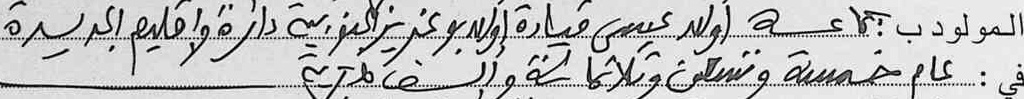 المولود ب: جماعة أولاد عيسى قيادة أولاد بوعزيز الجنوبية دائرة وإقليم الجديدة
في: عام خمسة وتسعين وثلاثمائة وألف هجرية